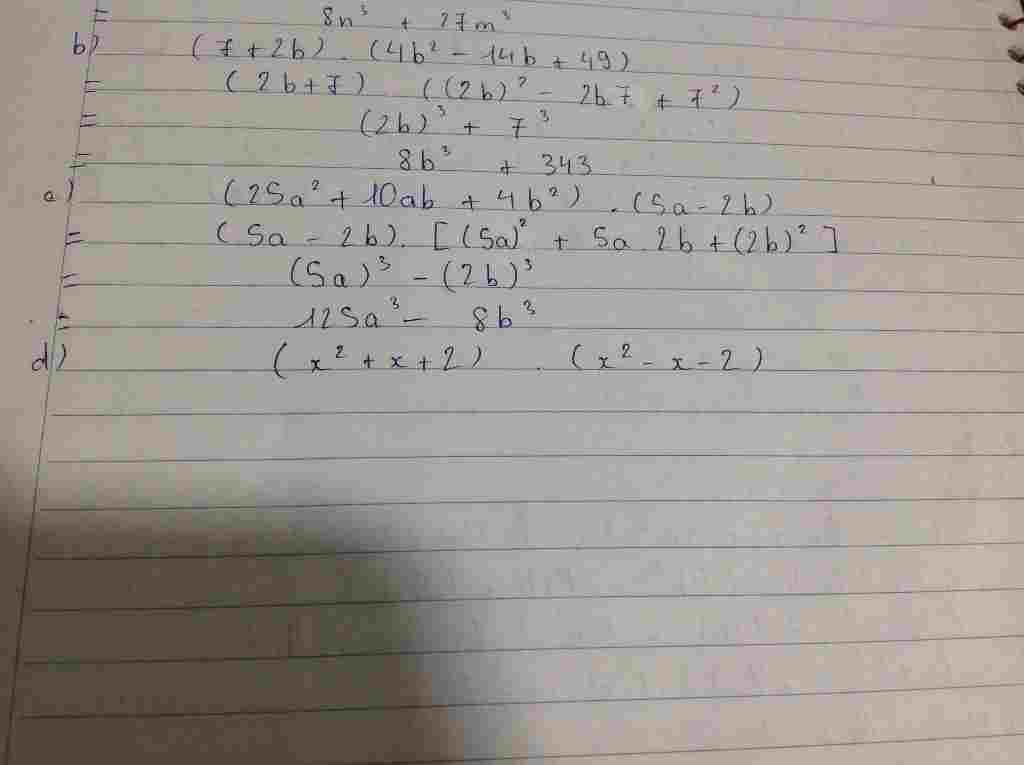 = 8n³ + 27m³
b) (7 + 2b) . (4b² - 14b + 49)
= (2b + 7) ((2b)² - 2b7 + 7²)
= (2b)³ + 7³
= 8b³ + 343
c) (25a² + 10ab + 4b²) . (5a - 2b)
= (5a - 2b). [(5a)² + 5a 2b + (2b)²]
= (5a)³ - (2b)³
= 125a³ - 8b³
d) (x² + x + 2) . (x² - x - 2)